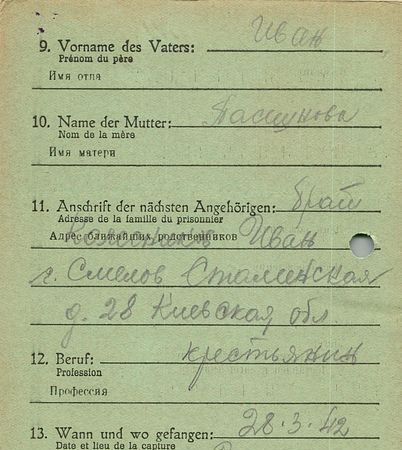 Иван
9. Vorname des Vaters:
Prénom du père
Имя отца
10. Name der Mutter:
Nom de la mère
Имя матери
11. Anschrift der nächsten Angehörigen: брат
Adresse de la famille du prisonnier
Адрес ближайших родственников Иван
г. Смелов Сталинская
д. 28 Киевская обл.
12. Beruf: крестьянин
Profession
Профессия
13. Wann und wo gefangen: 28.3.42
Date et lieu de la capture